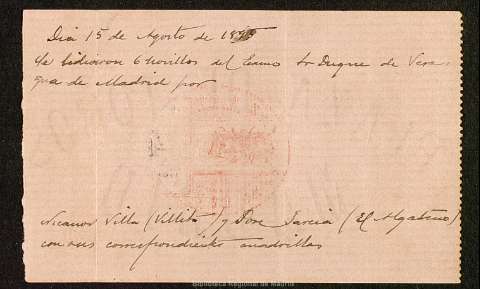 Dia 15 de Agosto de 1895
Se lidiaron 6 novillos del Excmo Sr Duque de Vera-
gua de Madrid por
Nicanor Villa (Villita) y Jose Garcia (El Algabeño)
con sus correspondientes cuadrillas
Biblioteca Regional de Madrid